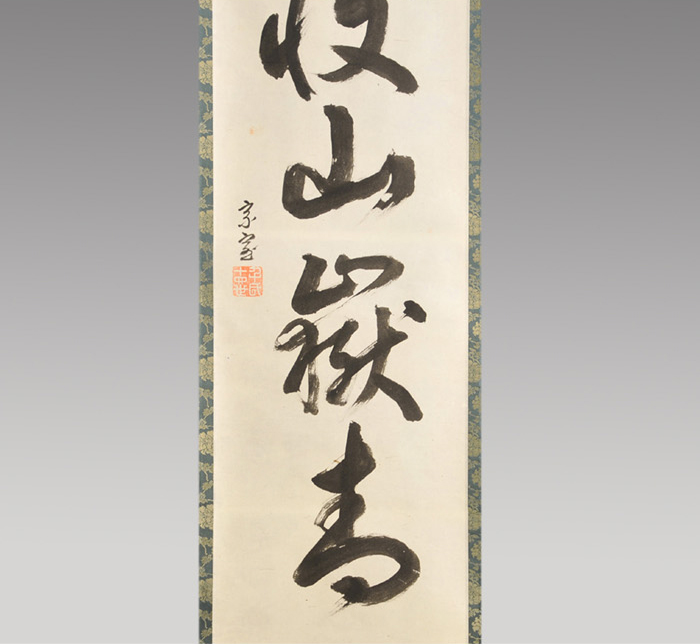 収山嶽青
宗室